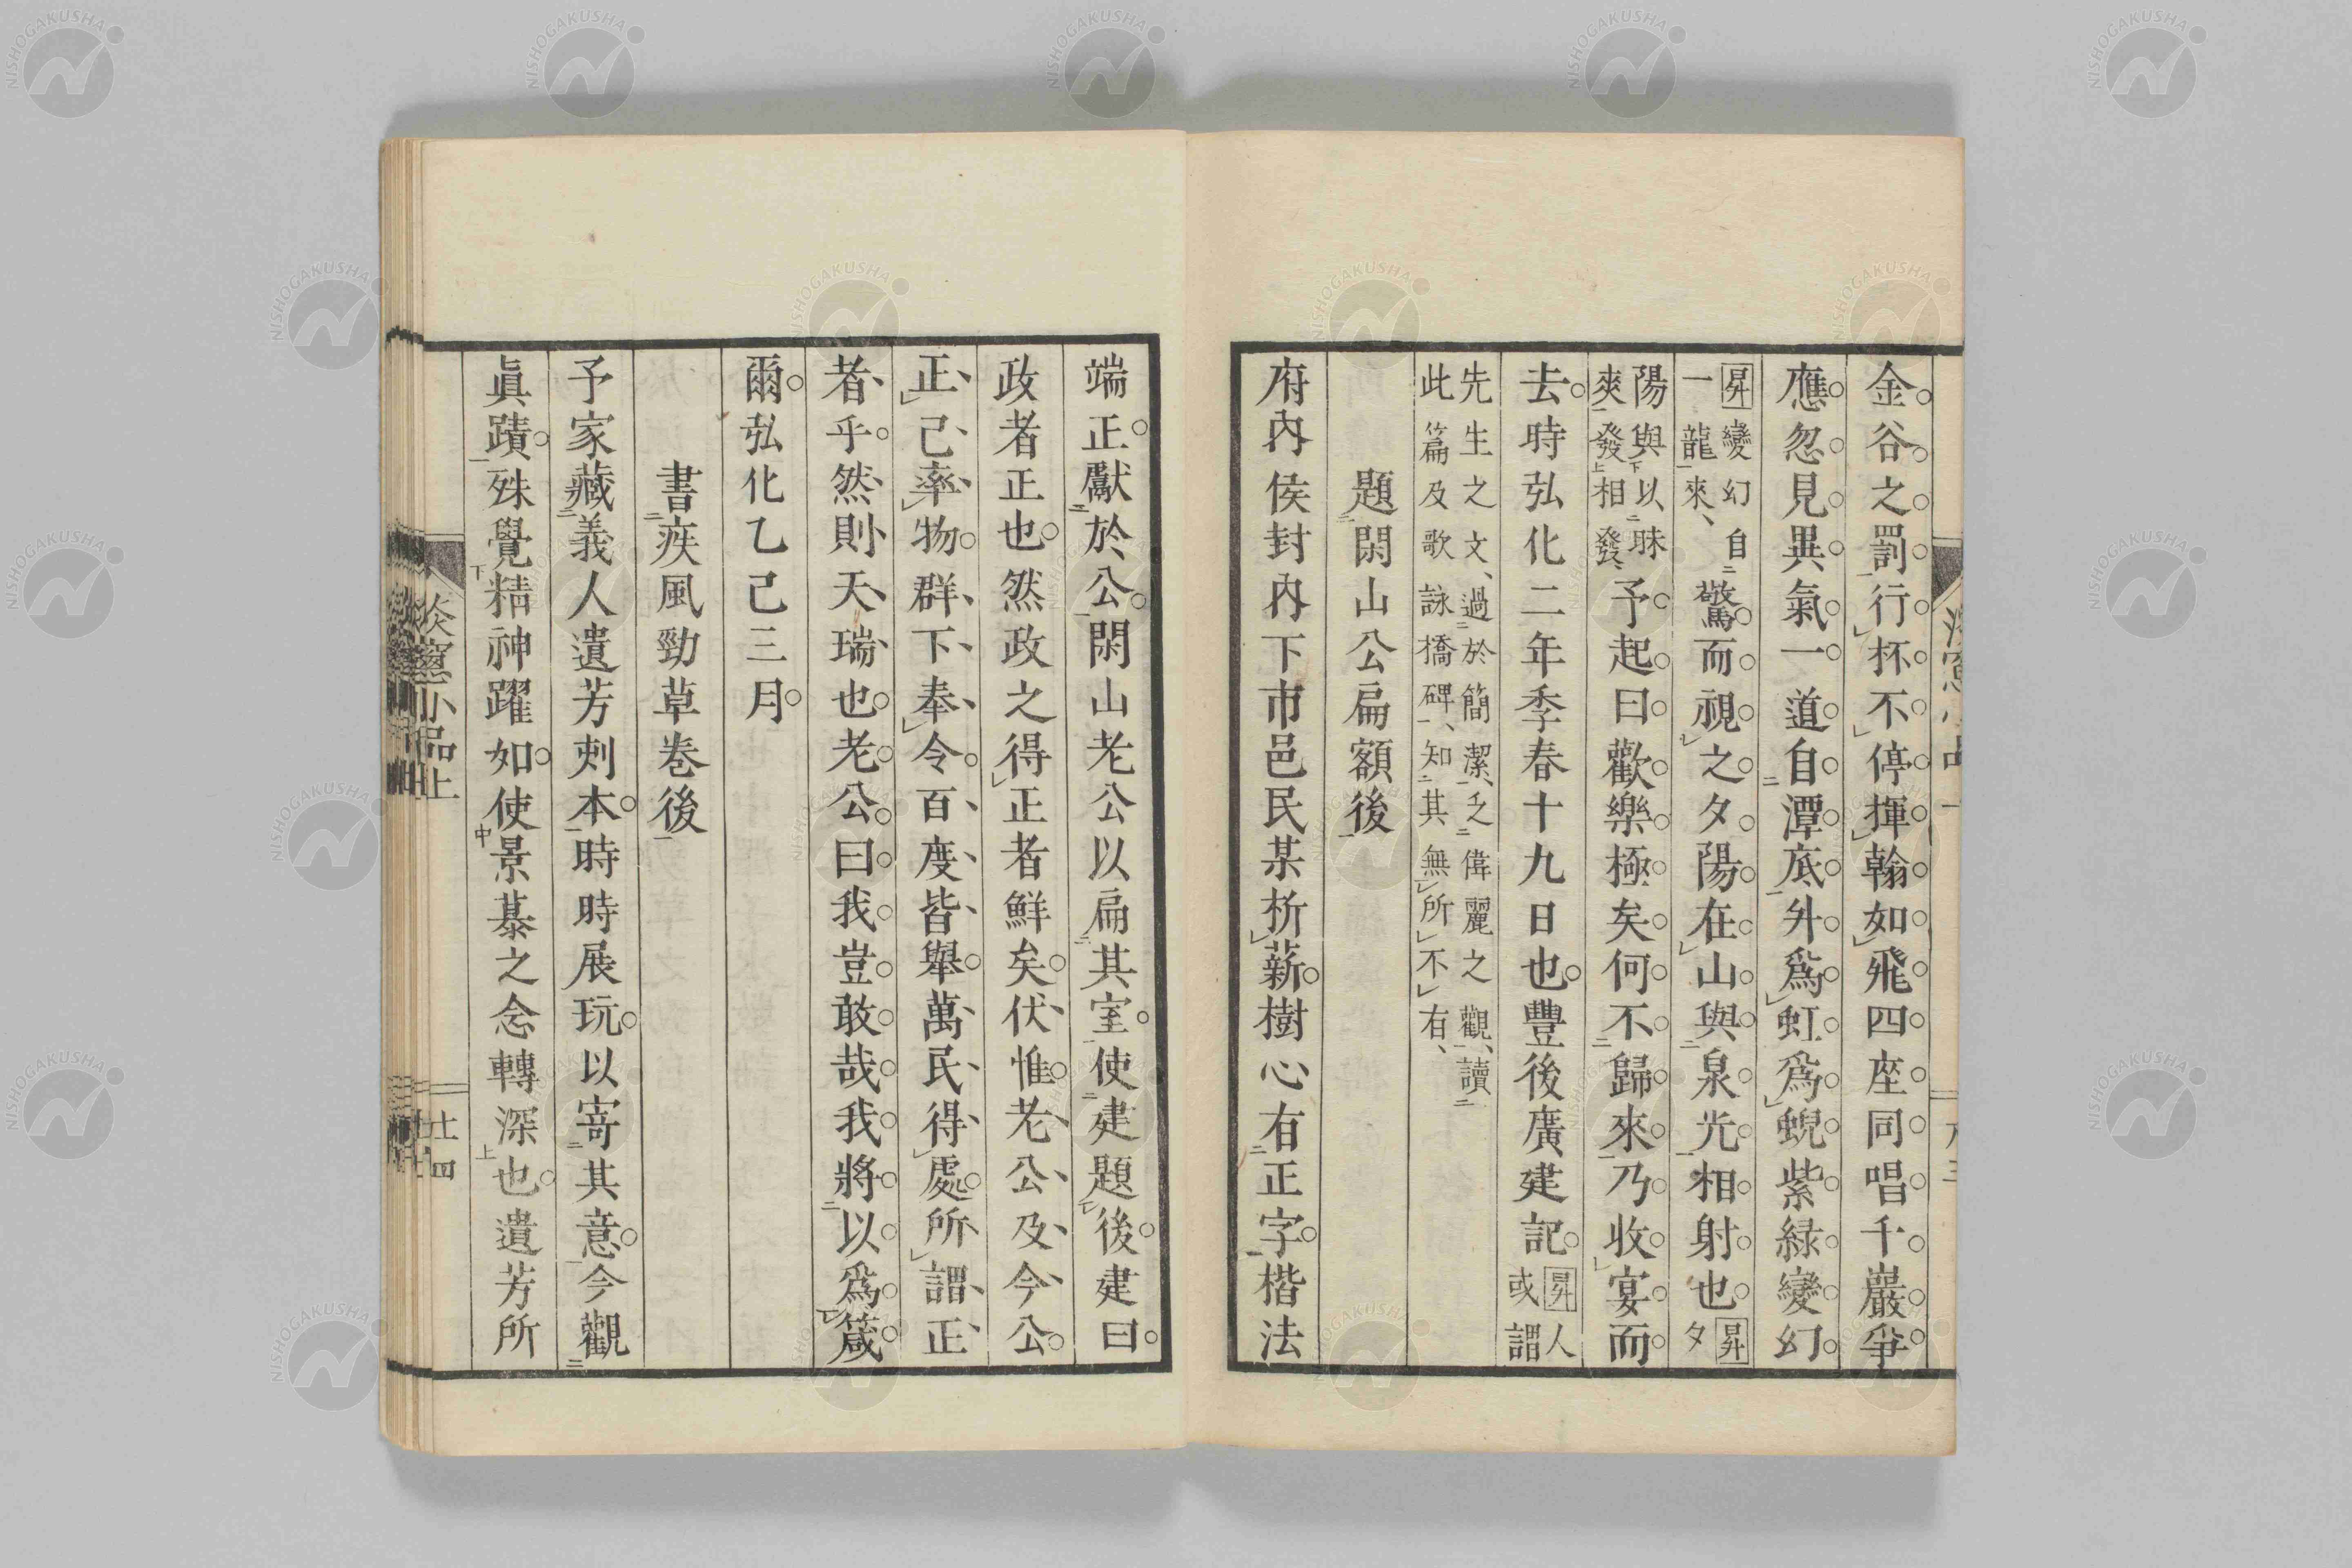 金谷之罰行杯不停揮翰如飛四座同唱千巖爭
應忽見異氣一道自潭底升爲虹爲蜺紫緑變幻
昇變幻自
一龍來、
驚而視之夕陽在山與泉光相射也
昇
夕
陽與以昧
爽發相發、
予起曰歡樂極矣何不歸來乃收宴而
去時弘化二年季春十九日也豐後廣建記
昇人
或謂
先生之文、過於簡潔、乏偉麗之觀、讀
此篇及歌詠橋碑、知其無所不有、
題閑山公扁額後
府內侯封內下市邑民某析薪樹心有正字楷法
端正獻於公閑山老公以扁其室使建題後建曰
政者正也然政之得正者鮮矣伏惟老公及今公
正己率物群下奉令百度皆舉萬民得處所謂正
者乎然則天瑞也老公曰我豈敢哉我將以爲箴
爾弘化乙己三月
書疾風勁草卷後
予家藏義人遺芳刺本時時展玩以寄其意今觀
眞蹟殊覺精神躍如使景慕之念轉深也遺芳所
淡窻小品上
十四